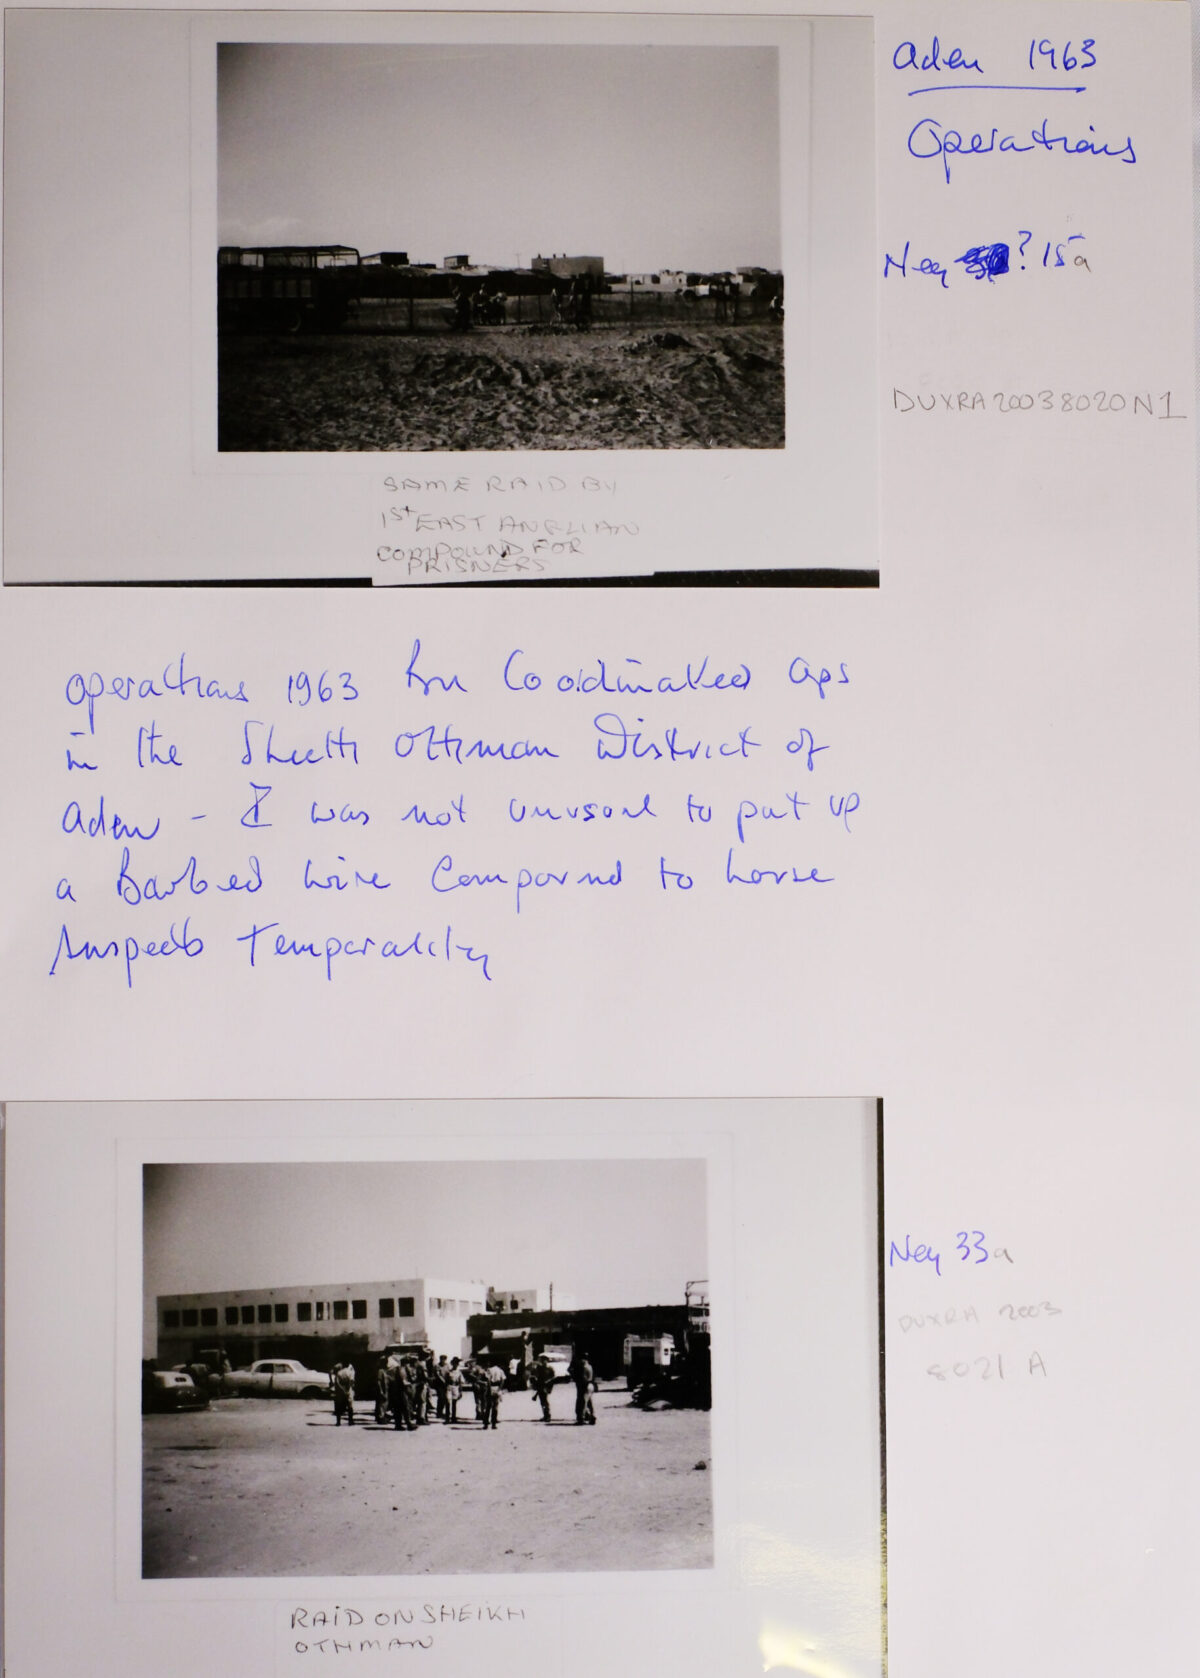 Aden 1963
Operations
Neg ? 15a
DUXRA20038020N1
SAME RAID BY
1st EAST ANGLIAN
COMPOUND FOR
PRISNERS
Operations 1963 Coordinated Ops
in the Othman District of
Aden - I was not unusual to put up
a Barbed wire Compound to house
suspects Temporarily
Neg 33a
DUXRA 2003
8021 A
RAID ON SHEIKH
OTHMAN